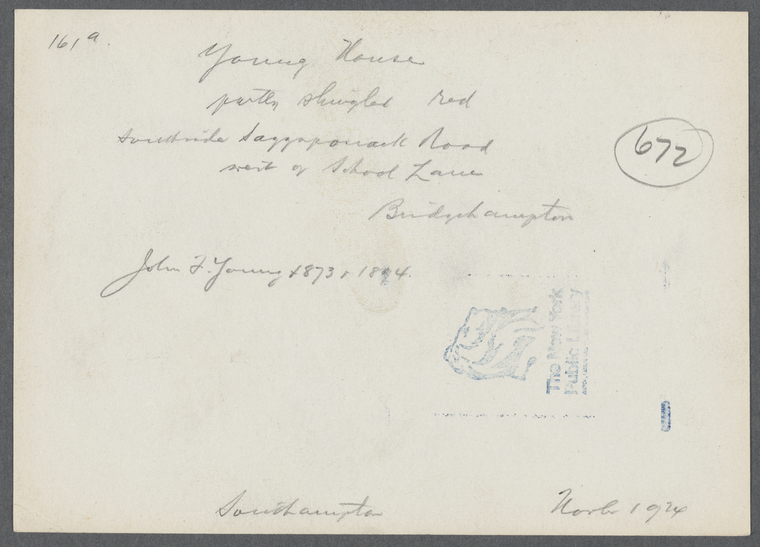 161a.
Young House
partly shingled red
southside Saggaponack Road
west of School Lane
Bridgehampton
672
John F. Young 1873 & 1894.
The New York
Public Library
Southampton
1924